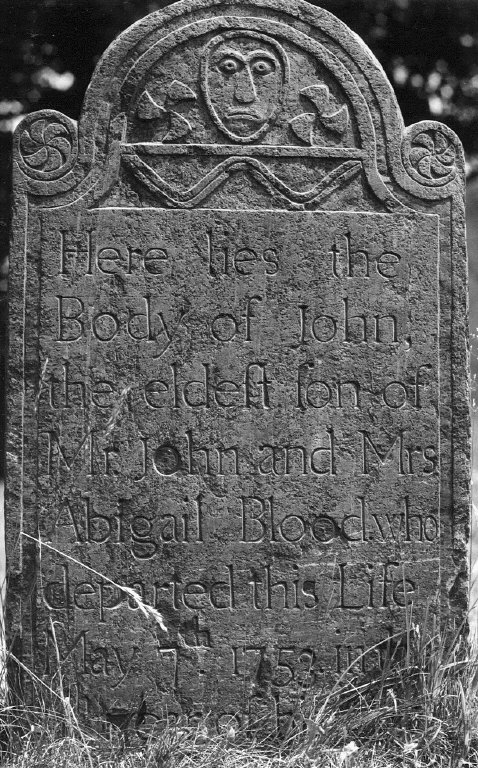 Here lies the
Body of John,
the eldeſt ſon of
Mr. John and Mrs
Abigail Blood.who
departed this Life
May 7th. 1753 in